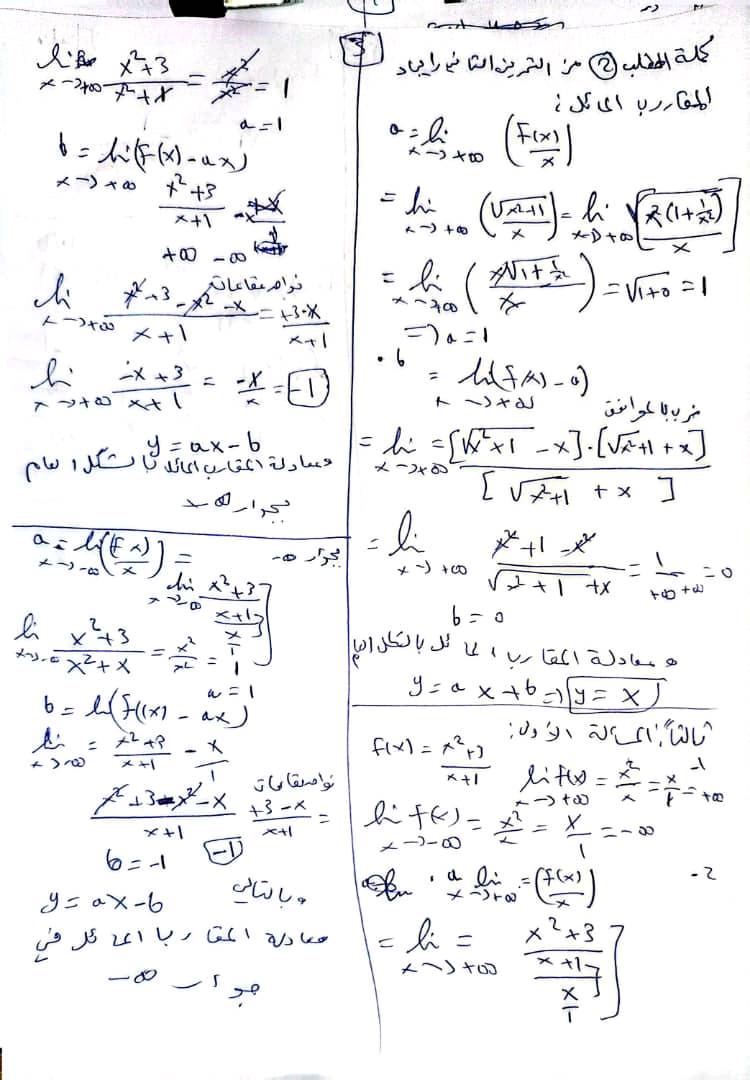 3
تكملة الطلب (2) من التمرين الثاني إيجاد
المقارب المائل:
a = lim x→+∞ (f(x)/x)
= lim x→+∞ (√x²+1 / x) = lim x→+∞ √x²(1+1/x²) / x
= lim x→+∞ (x√1+1/x² / x) = √1+0 = 1
=> a = 1
b = lim (f(x) - a) x→+∞
ضرب بالمرافق
= lim x→+∞ = [√x²+1 - x].[√x²+1 + x] / [√x²+1 + x]
= lim x→+∞ x²+1-x² / √x²+1 + x = 1 / +∞+∞ = 0
b = 0
معادلة المقارب المائل بالشكل
y = ax+b => y = x
ثالثاً: الحالة الأولى:
f(x) = x²+3 / x+1
1- lim f(x) x→+∞ = x²/x = x/1 = +∞
lim f(x) x→-∞ = x²/x = x/1 = -∞
2- a lim x→+∞ = (f(x)/x)
= lim x→+∞ = x²+3 / x+1 / x/1
lim x→+∞ x²+3 / x²+x = x²/x² = 1
a = 1
b = lim (f(x) - ax) x→+∞
x²+3 / x+1 - x
+∞ -∞
lim x→+∞ x²+3-x²-x / x+1 = +3-x / x+1
lim x→+∞ -x+3 / x+1 = -x/x = -1
y = ax-b
ومعادلة المقارب المائل بالشكل
بجوار +∞
بجوار -∞
a = lim x→-∞ (f(x)/x) =
lim x→-∞ x²+3 / x+1 / x/1
lim x→-∞ x²+3 / x²+x = x²/x² = 1
a = 1
b = lim (f(x) - ax)
lim x→-∞ = x²+3 / x+1 - x/1
x²+3-x²-x / x+1 +3-x / x+1 =
b = -1 -1
وبالتالي
y = ax-b
معادلة المقارب المائل في
جوار -∞